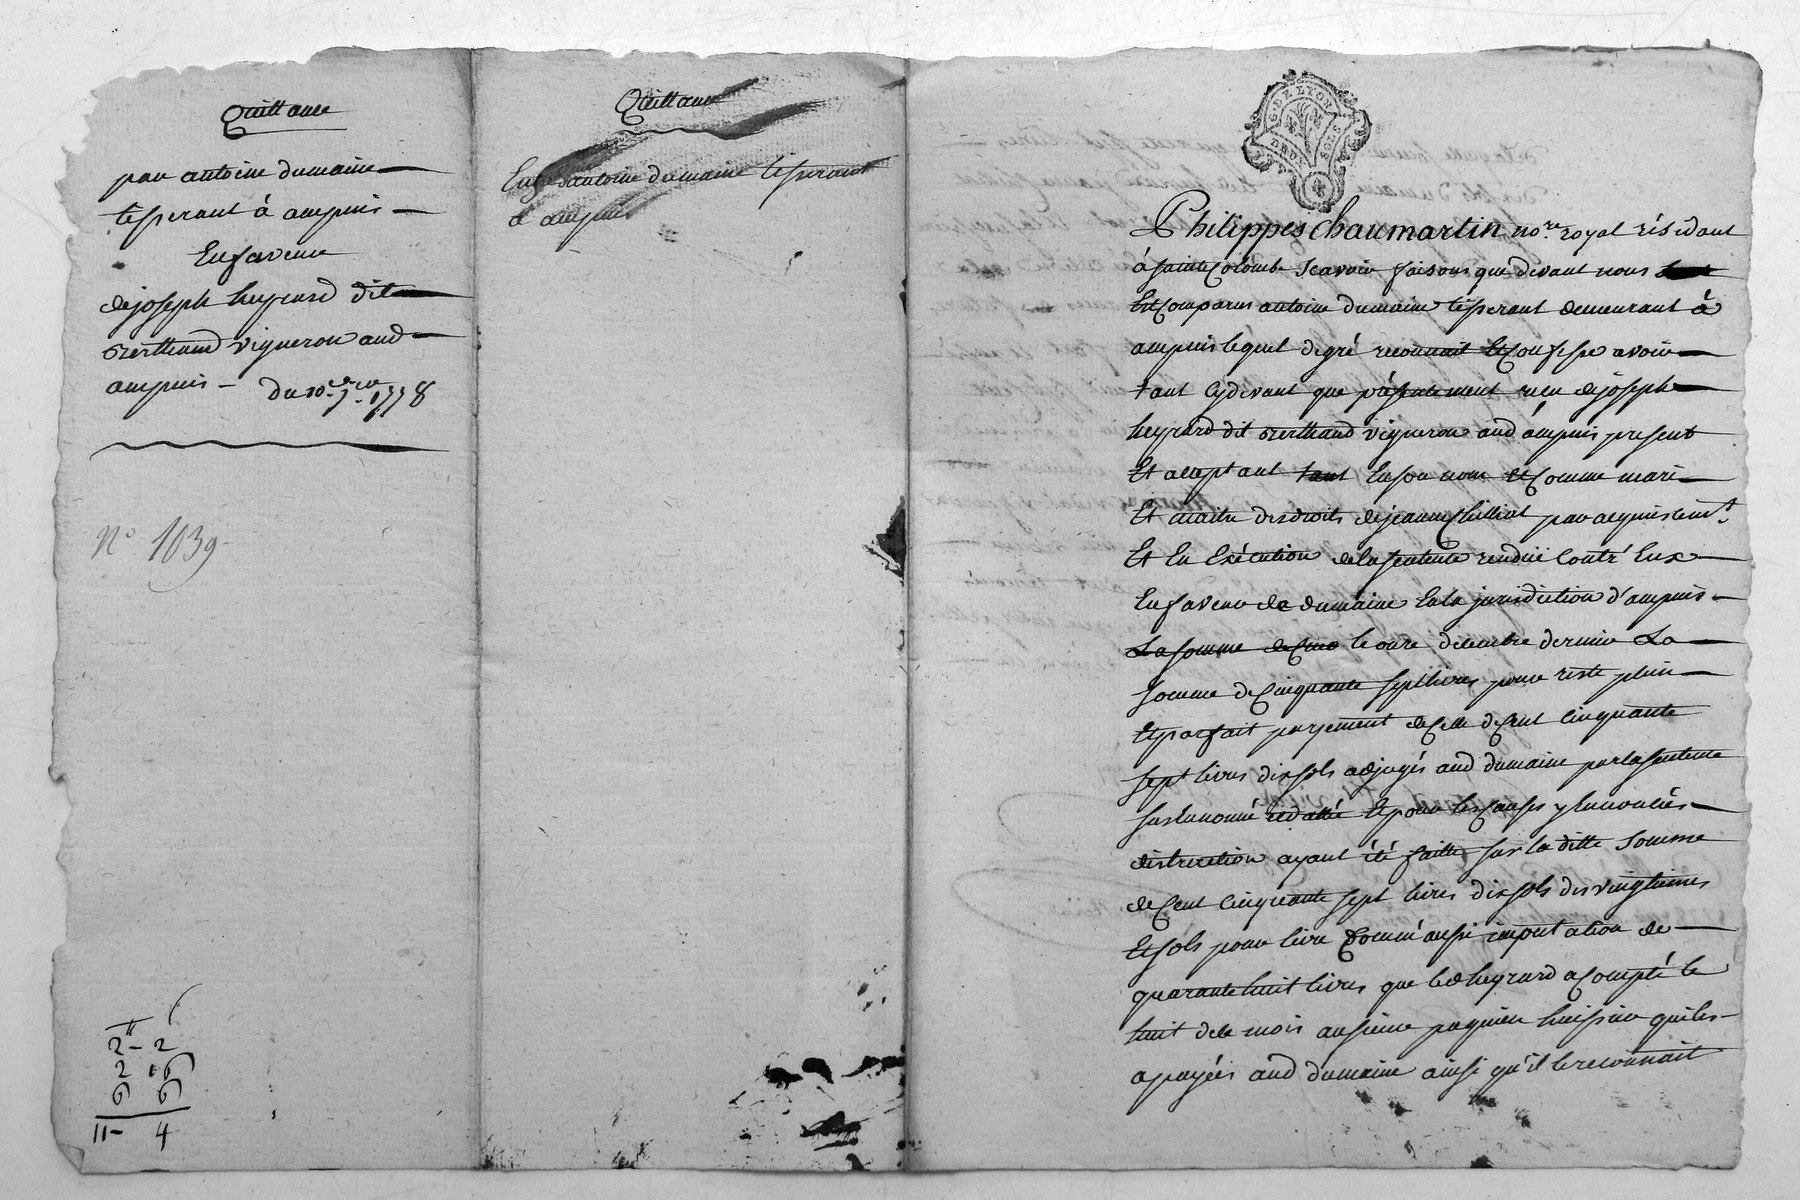 Quittance
par antoine dumaine
tisserant à ampuis
En faveur
de joseph heyrard dit
Berthaud vigneron aud
ampuis - du 10e. 1778
N° 1039
2 - 2
2 6
6 6
11 - 4
Quittance
antoine dumaine tisserant
à ampuis
G. DE LYON
DEUX SOLS
Philippes Chaumartin nore. royal résidant
à sainte Colombe scavoir faisons que devant nous
Est Comparus antoine dumaine tisserant demeurant à
ampuis lequel de gré reconnait et Confesse avoir
tant cydevant que présentement reçu de joseph
heyrard dit Berthaud vigneron aud ampuis present
Et acceptant tant En son nom et Comme mari
Et maitre des droits de jeanne Chilliat par acquis
Et En Exécution de la sentence rendue Contre Eux
En faveur de dumaine En la jurisdiction d'ampuis
La somme de Cinq le onze décembre dernier La
somme de Cinquante sept livres pour reste plein
Et parfait payement de Celle de Cent Cinquante
sept livres dix sols adjugés aud dumaine par la sentence
susénoncé Et pour les Causes y Enoncées
distraction ayant été faitte sur la ditte somme
de Cent Cinquante sept livres dix sols des vingtiemes
Et sols pour livre Comme aussi imputation de
quarante huit livres que led heyrard a Compté le
huit de ce mois au sieur huissier qui les
a payées aud dumaine ainsi qu'il le reconnait